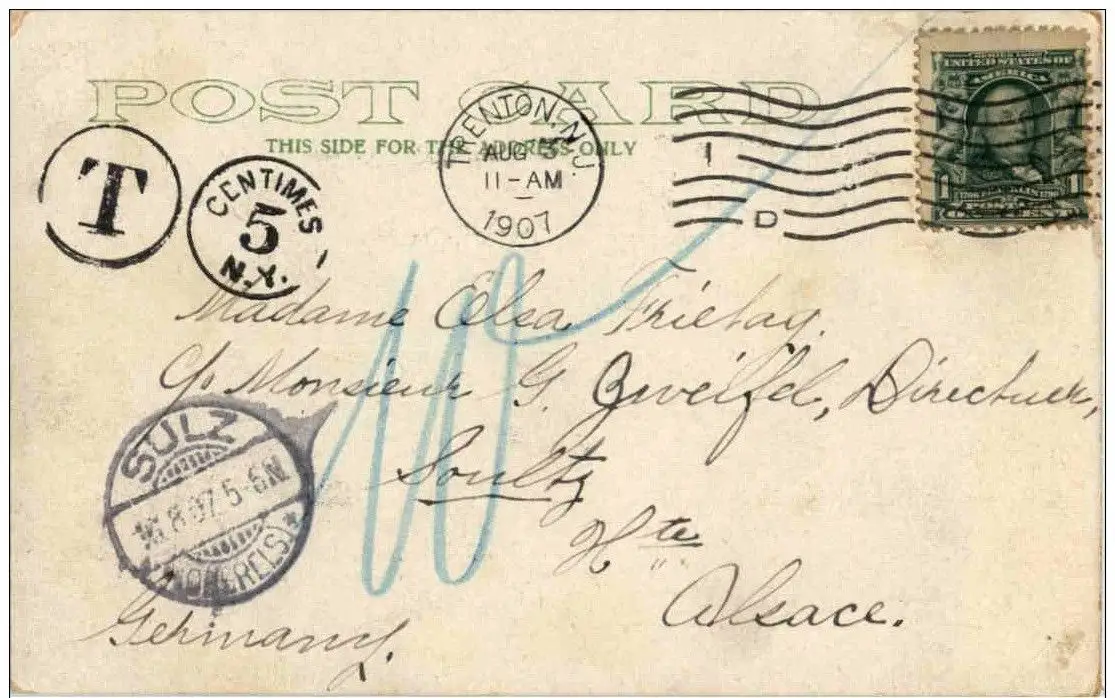 POST CARD
THIS SIDE FOR THE ADDRESS ONLY
UNITED STATES OF
AMERICA
1 1
TRENTON, N.J.
AUG 3
11-AM
1907
1
D
T
CENTIMES
5
N.Y.
10
Madame Elsa Frietag.
c/o Monsieur G. Zweifel, Directuer,
Soultz
Hte
Alsace.
Germany.
SULZ
16.8.07.5-6N
(OBERELS)